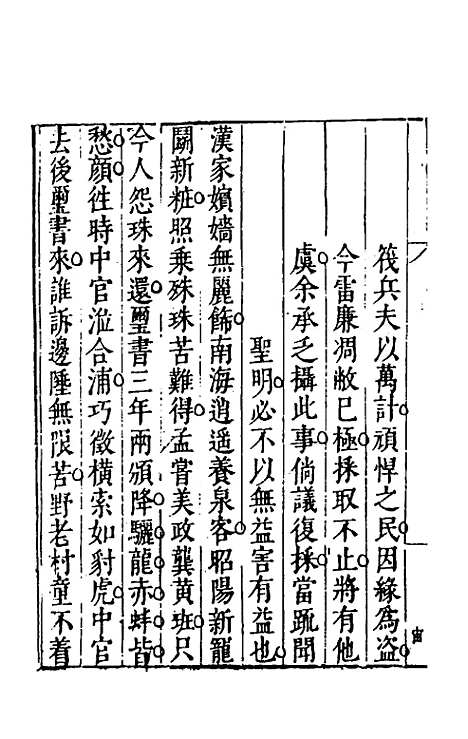 筏兵夫以萬計。頑悍之民。因緣為盜。
今雷廉凋敝已極。採取不止。將有他
虞。余承乏攝此事。倘議復採。當䟽聞
聖明。必不以無益害有益也。
漢家嬪嬙無麗飾。南海逍遥養泉客。昭陽新寵
鬭新粧。照乗殊珠苦難得。孟甞美政龔黄班。只
今人怨珠來還。璽書三年兩頒降。驪龍赤蚌皆
愁顔。徃時中官涖合浦。巧徵横索如豺虎。中官
去後璽書來。誰訴邊陲無限苦。野老村童不着
宙